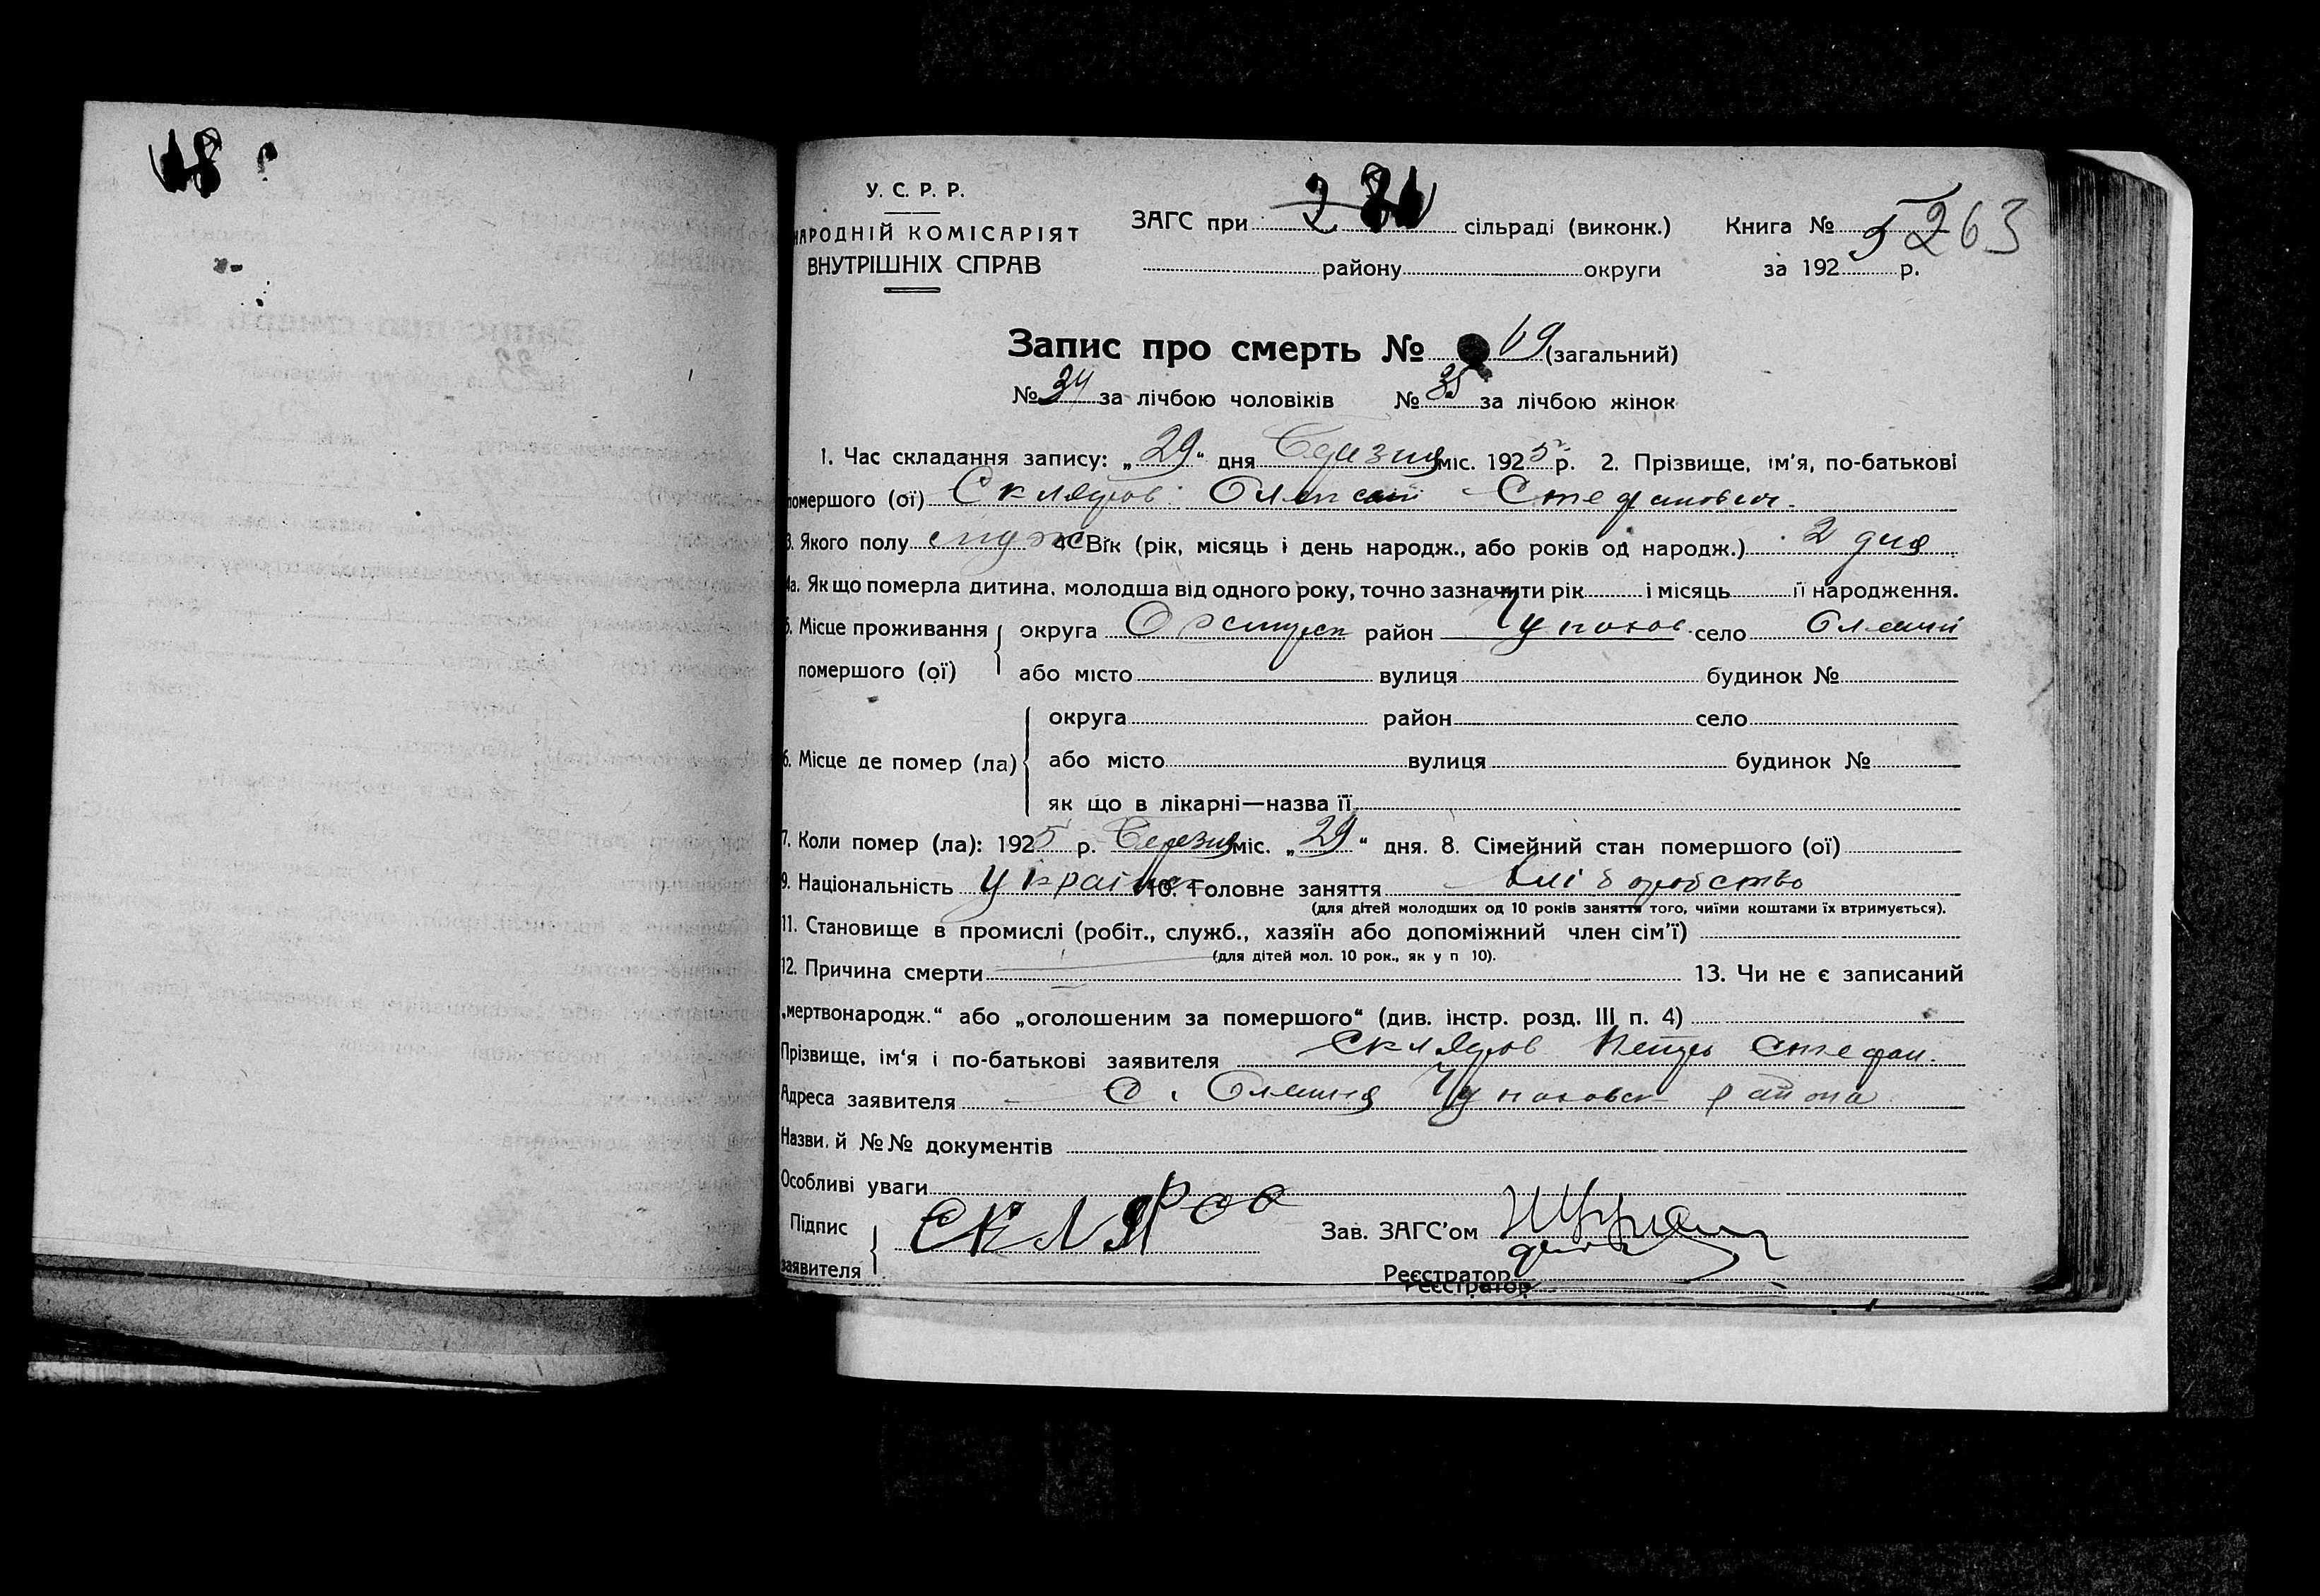 У. С. Р. Р.
НАРОДНІЙ КОМІСАРІЯТ
ВНУТРІШНІХ СПРАВ
ЗАГС при 2 сільраді (виконк.)
району округи
Книга № 5 263
за 192 р.
Запис про смерть № 69 (загальний)
№ 34 за лічбою чоловіків № 35 за лічбою жінок
1. Час складання запису: „29“ дня Березня міс. 1925 р. 2. Прізвище, ім'я, по-батькові
помершого (ої) Скляров Стефанович
3. Якого полу муж 4. Вік (рік, місяць і день народж., або років од народж.) 2 дня
4а. Як що померла дитина, молодша від одного року, точно зазначити рік і місяць її народження.
5. Місце проживання округа район село
помершого (ої) або місто вулиця будинок №
округа район село
6. Місце де помер (ла) або місто вулиця будинок №
як що в лікарні—назва її
7. Коли помер (ла): 1925 р. Березня міс. „29“ дня. 8. Сімейний стан помершого (ої)
9. Національність україн 10. Головне заняття хліборобство
(для дітей молодших од 10 років заняття того, чиїми коштами їх втримується).
11. Становище в промислі (робіт., служб., хазяїн або допоміжний член сім'ї)
(для дітей мол. 10 рок., як у п 10).
12. Причина смерти 13. Чи не є записаний
„мертвонародж.“ або „оголошеним за помершого“ (див. інстр. розд. III п. 4)
Прізвище, ім'я і по-батькові заявителя Скляров Петро Стефан.
Адреса заявителя С. района
Назви й №№ документів
Особливі уваги
Підпис
заявителя Скляров
Зав. ЗАГС'ом
Реєстратор
Реєстратор